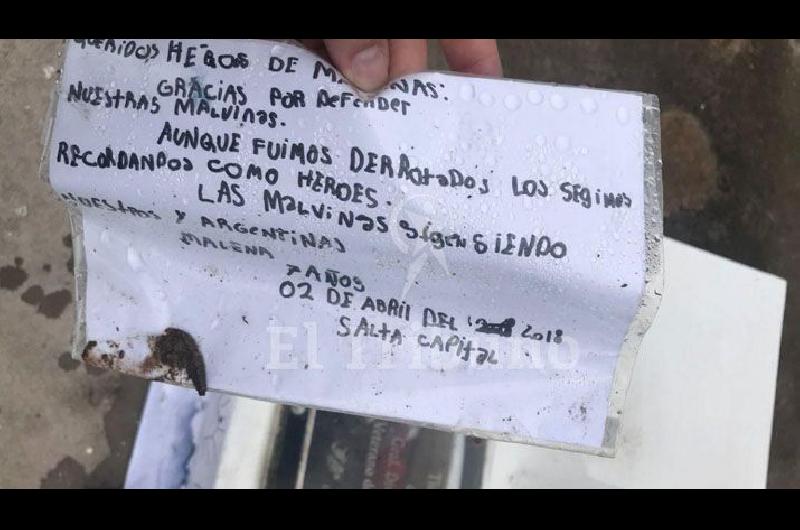 QUERIDOS HEROS DE MALVINAS:
GRACIAS POR DEFENDER
NUESTRAS MALVINAS.
AUNQUE FUIMOS DERROTADOS LOS SEGIMOS
RECORDANDOS COMO HEROES.
LAS MALVINAS SIGEN SIENDO
NUESTROS Y ARGENTINAS
MALENA 7 AÑOS
02 DE ABRIL DEL 2018
SALTA CAPITAL
El Tribuno